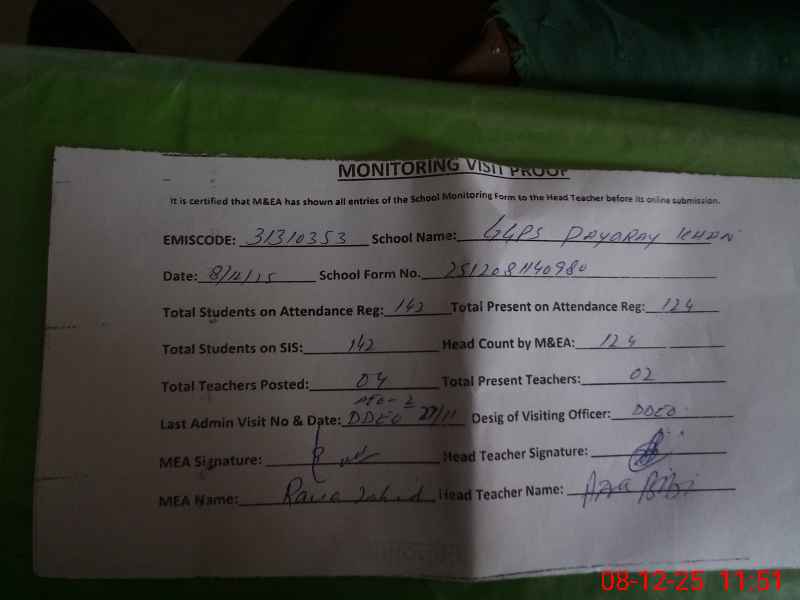 MONITORING VISIT PROOF
It is certified that M&EA has shown all entries of the School Monitoring Form to the Head Teacher before its online submission.
EMISCODE: 31310353 School Name: GGPS DAYORAY KHAN
Date: School Form No. 2512081140980
Total Students on Attendance Reg: 142 Total Present on Attendance Reg: 124
Total Students on SIS: 142 Head Count by M&EA: 124
Total Teachers Posted: 04 Total Present Teachers: 02
Last Admin Visit No & Date: DDEO 27/11 Desig of Visiting Officer: DDEO
MEA Signature: Head Teacher Signature:
MEA Name: Rana Head Teacher Name: Bibi
08-12-25 11:51